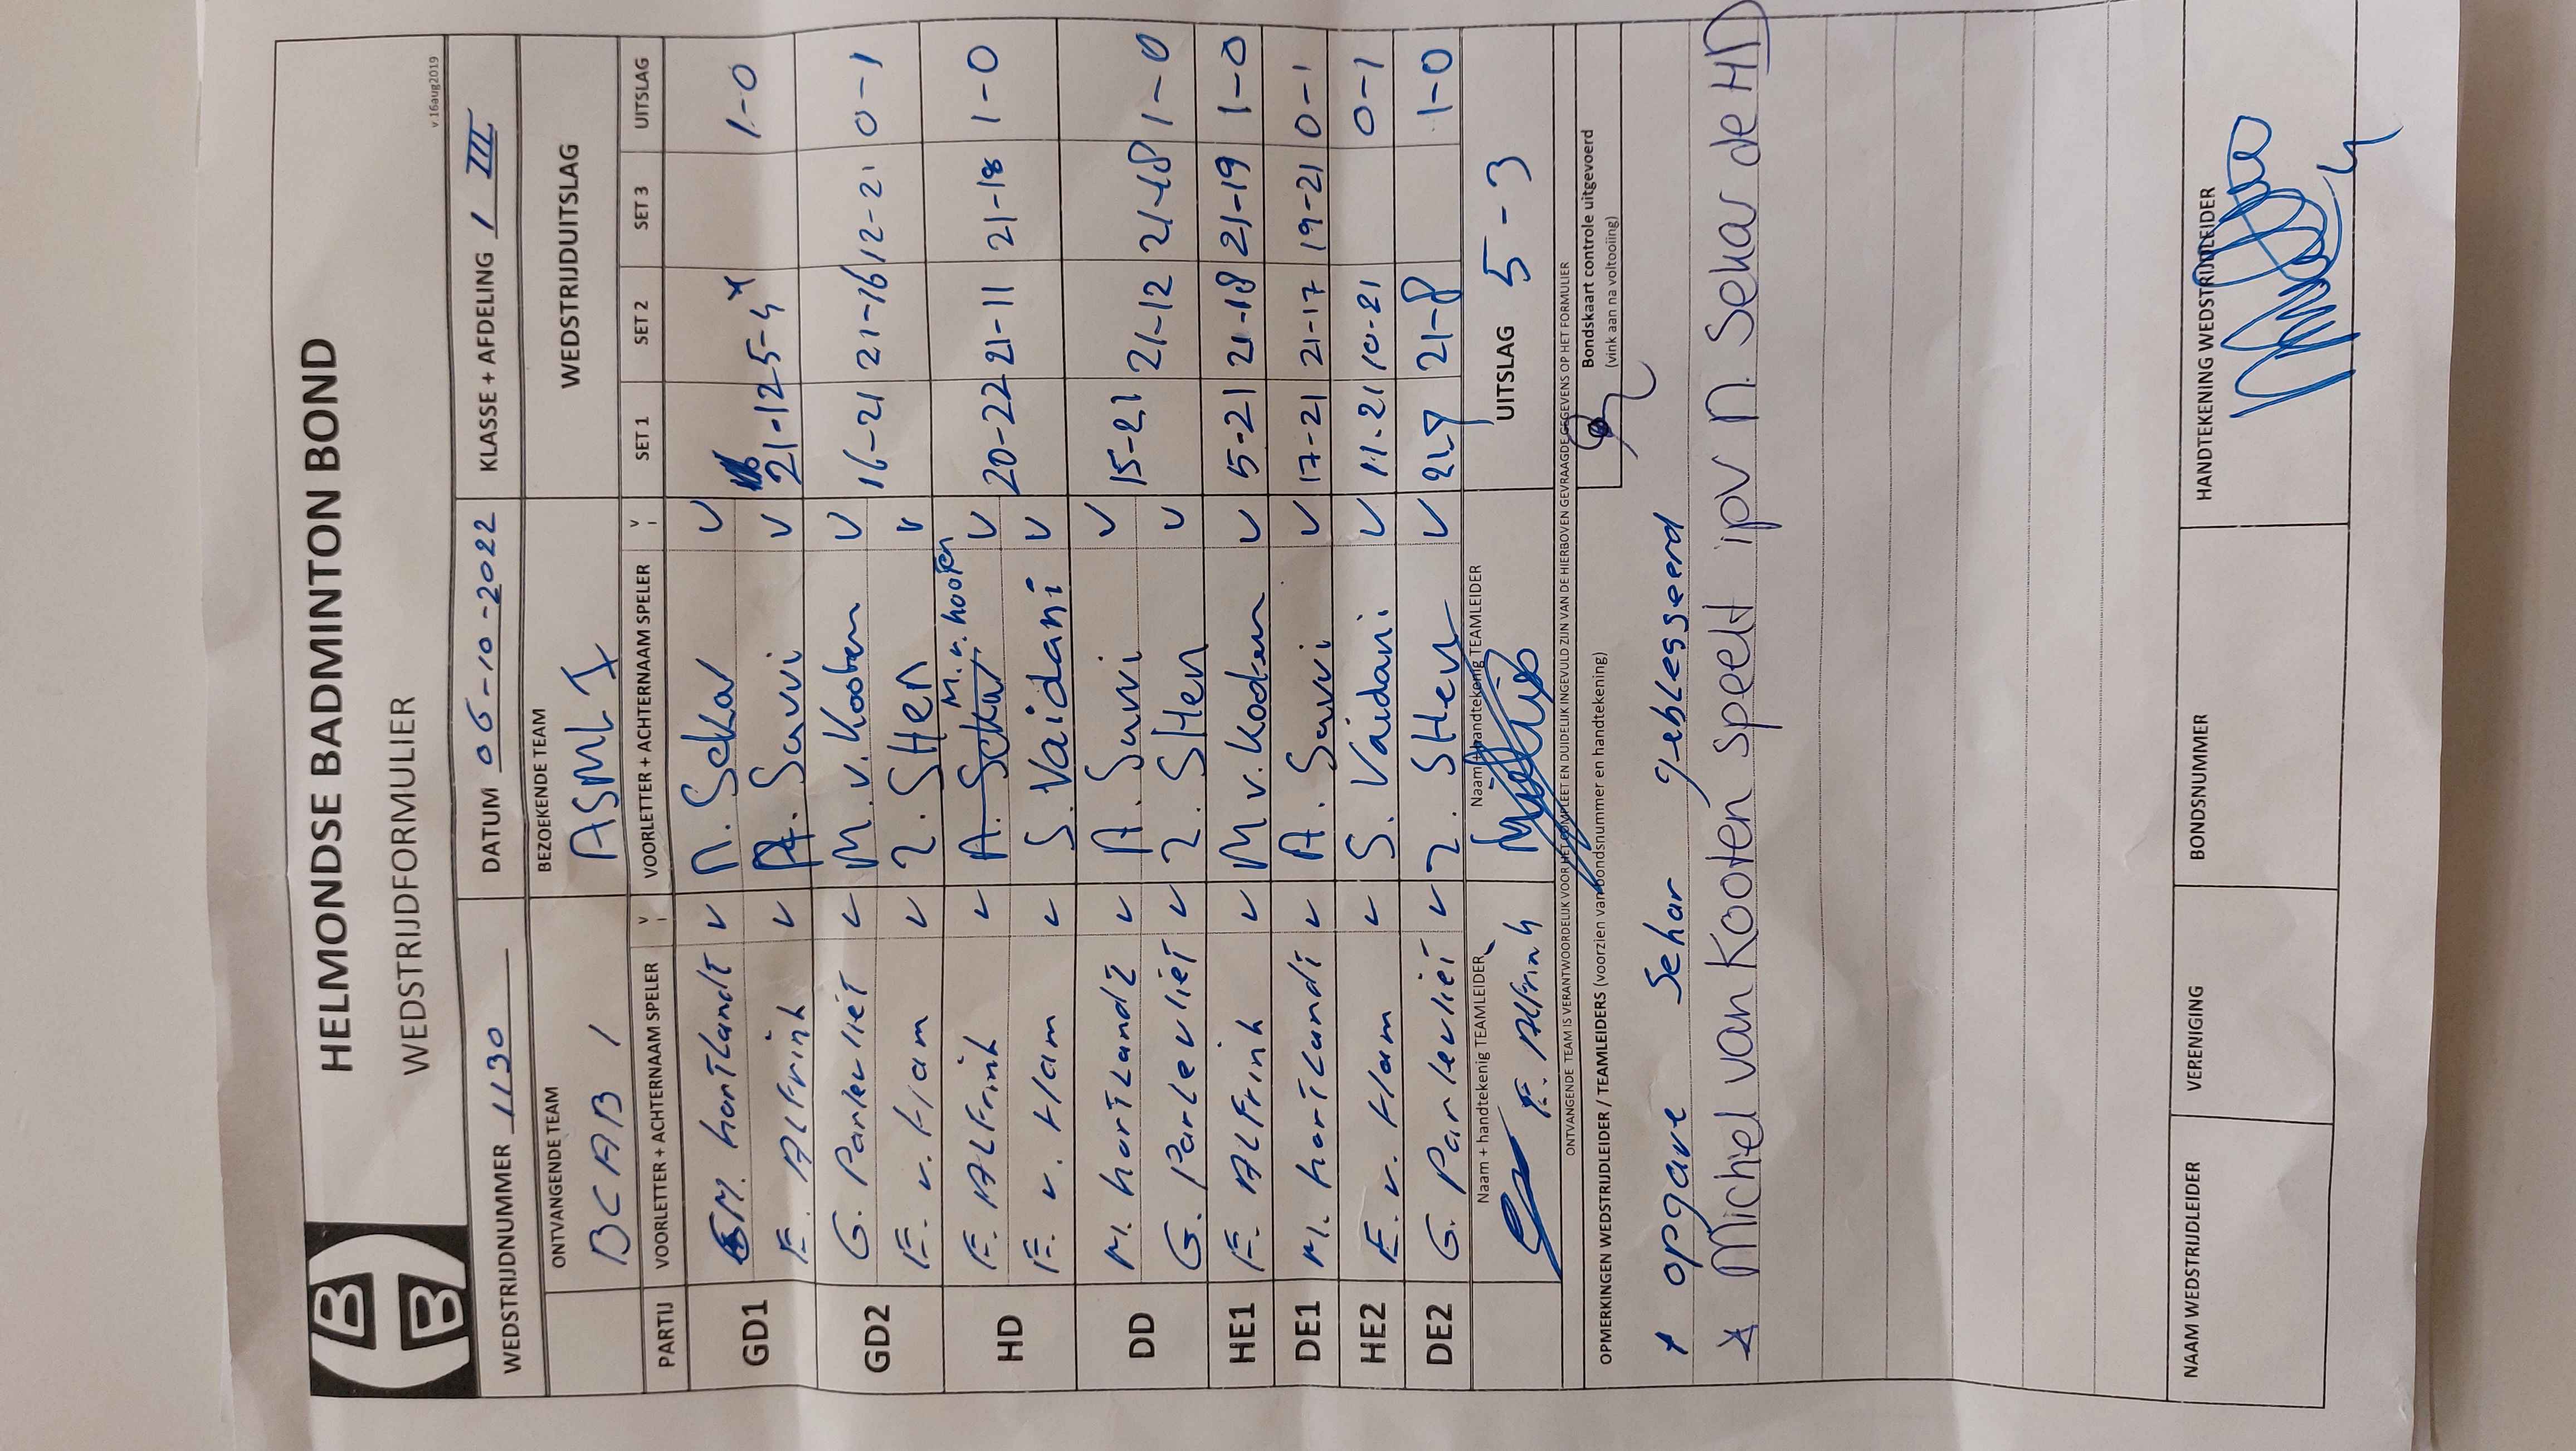 HELMONDSE BADMINTON BOND
WEDSTRIJDFORMULIER
v 16aug2019
WEDSTRIJDNUMMER 1130 DATUM 06-10-2022 KLASSE + AFDELING 1 III
ONTVANGENDE TEAM BEZOEKENDE TEAM WEDSTRIJDUITSLAG
BCAB 1 ASML 1
PARTIJ VOORLETTER + ACHTERNAAM SPELER V VOORLETTER + ACHTERNAAM SPELER V SET 1 SET 2 SET 3 UITSLAG
GD1 M. hortlandt v N. Sekar v 21-12 5-4* 1-0
E. Alfrink v A. Suvvi v
GD2 G. Parlevliet v M. v. Kooten v 16-21 21-16 12-21 0-1
E. v. Ham v Z. SHen v
HD E. Alfrink v A. Sekar M. v. kooten v 20-22 21-11 21-18 1-0
E. v. Ham v S. Vaidani v
DD M. hortlandt v A. Suvvi v 15-21 21-12 21-18 1-0
G. Parlevliet v Z. SHen v
HE1 E. Alfrink v M v. Kooten v 5-21 21-18 21-19 1-0
DE1 M. hortlandt v A. Suvvi v 17-21 21-17 19-21 0-1
HE2 E. v. Ham v S. Vaidani v 11-21 10-21 0-1
DE2 G. Parlevliet v Z. SHen v 21-9 21-8 1-0
Naam + handtekenig TEAMLEIDER Naam + handtekenig TEAMLEIDER UITSLAG 5-3
E. Alfrink
ONTVANGENDE TEAM IS VERANTWOORDELIJK VOOR HET COMPLEET EN DUIDELIJK INGEVULD ZIJN VAN DE HIERBOVEN GEVRAAGDE GEGEVENS OP HET FORMULIER
OPMERKINGEN WEDSTRIJDLEIDER / TEAMLEIDERS (voorzien van bondsnummer en handtekening)
Bondskaart controle uitgevoerd
(vink aan na voltooiing)
* opgave Sekar geblesseerd
* Michel van Kooten speelt ipv N. Sekar de HD
NAAM WEDSTRIJDLEIDER VERENIGING BONDSNUMMER HANDTEKENING WEDSTRIJDLEIDER